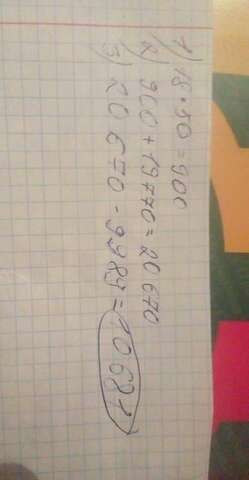 1) 18 · 50 = 900
2) 900 + 19770 = 20 670
3) 20 670 - 9989 = 10681